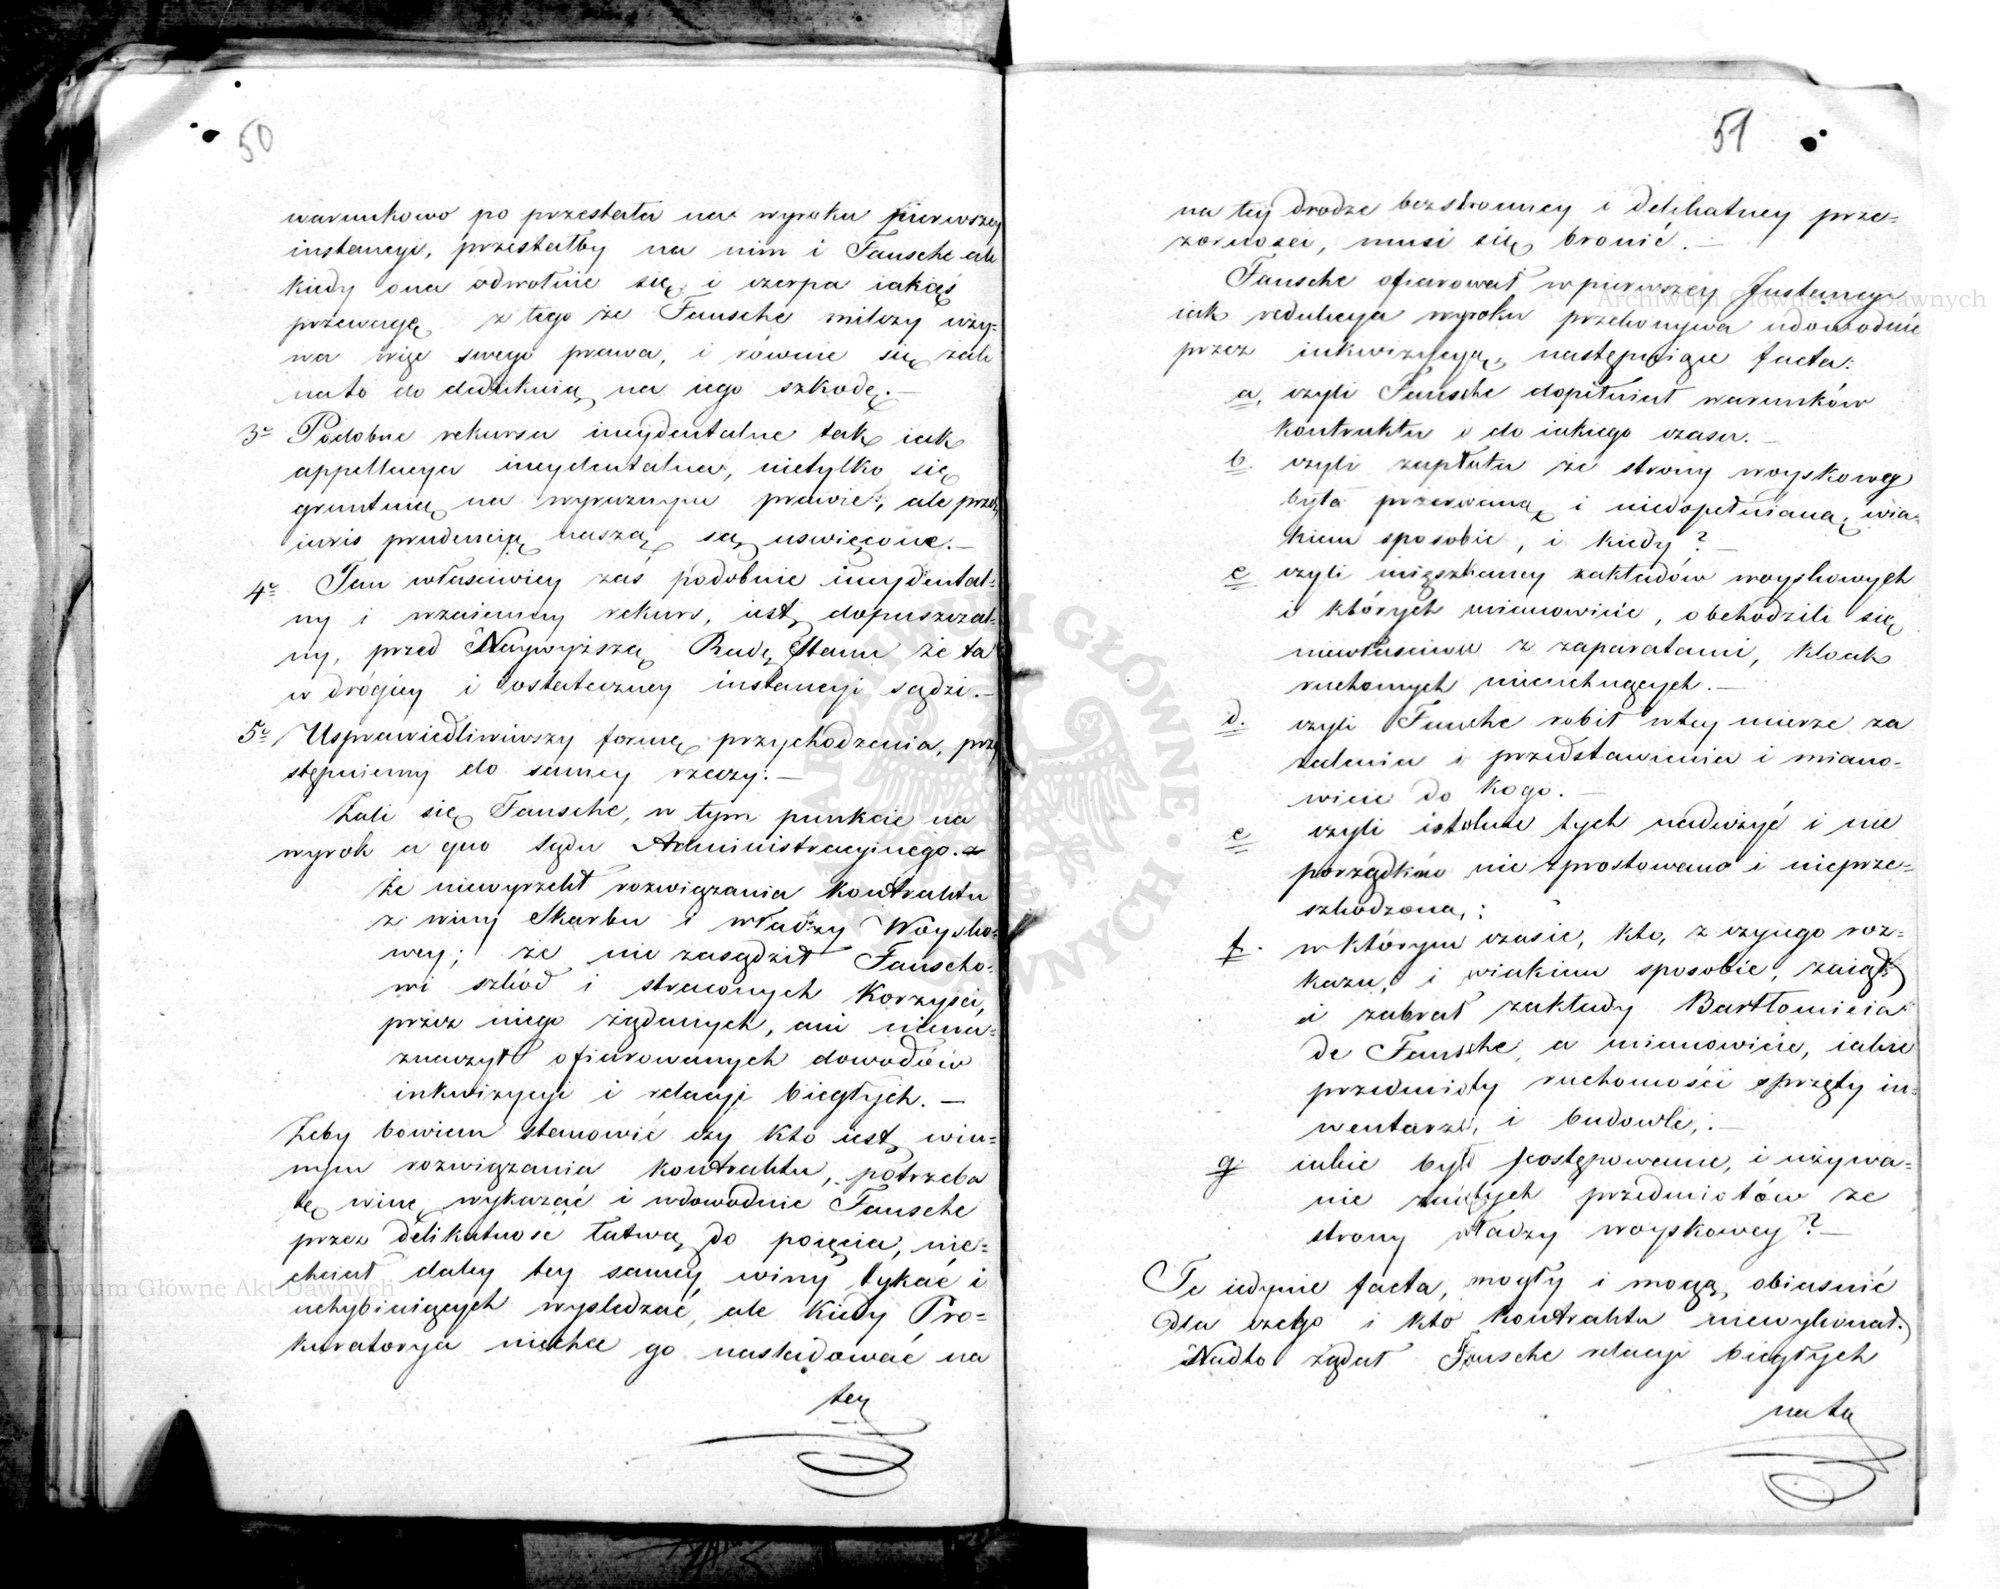 50
warunkowo po przestała na wyroku pierwszey
instancyi, przestałby na nim i Fansche ale
kiedy ona odwołuie się, i czerpa iakąś
przewagę z tego że Fansche milczy uży-
wa więc swego prawa, i równie się żali
nato do dedukuią na iego szkodę.—
3e Podobne rekursa incydentalne tak iak
appellacya incydentalna, nietylko się
gruntuią na wyraznym prawie; ale przez
iuris prudencią naszą są uswięcone.—
4e Tem własciwiey zaś podobnie incydental-
ny i wzaiemny rekurs, iest dopuszczal-
ny, przed Naywyższą Radą Stanu że ta
w drógiey i ostateczney instancyi sądzi.—
5e Usprawiedliwiwszy formę przychodzenia, przy
stępuiemy do samey rzeczy:—
Żali się Fansche, w tym punkcie na
wyrok a quo Sądu Administracyinego.
że niewyrzekł rozwiązania kontraktu
z winy Skarbu i władzy Woysko-
wey; że nie zasądził Fanscho-
wi szkód i straconych Korzyści,
przez niego żądanych, ani niewy-
znaczył ofiarowanych dowodów
inkwizycyi i relacyi biegłych.—
Żeby bowiem stanowić czy kto iest win-
nym rozwiązania kontraktu, potrzeba
tę winę wykazać i udowodnić Fansche
przez delikatnosć łatwą do poięcia, nie-
chciał daley tey samey winy tykać i
uchybiaiących wysledzać, ale kiedy Pro-
kuratorya niechce go nasladować na
tey
51
na tey drodze bezstronney i delikatney prze-
zorności, musi się bronić.—
Fansche ofiarował w pierwszey Instancyi
iak redukcya wyroku przekonywa udowodnić
przez inkwizycyą, następuiące facta:
a, czyli Fansche dopełniał warunków
kontraktu i do iakiego czasu.—
b czyli zapłata ze strony woyskowey
była przerwaną i niedopełnianą, wia-
kiem sposobie, i kiedy?—
c czyli mięszkancy zakładów woyskowych
i których mianowicie, obchodzili się
niewłasciwie z zaparatami, kloak
ruchomych nieuchuących.—
d. czyli Fansche robił w tey mierze za
żalenia i przedstawienia i miano-
wicie do kogo.—
e czyli istotnie tych nadużyć i nie
porządków nie sprostowano i nieprze-
szkodzono;
f. w którym czasie, kto, z czyiego roz-
kazu, i wiakim sposobie, zaiął
i zabrał zakłady Bartłomieia
de Fansche, a mianowicie, iakie
przedmioty ruchomości sprzęty in-
wentarze, i budowle;—
g iakie było postępowanie, i używa-
nie zaiętych przedmiotów ze
strony władzy woyskowey?—
Te iedynie facta, mogły i mogą, obiasnić
dla czego i kto kontraktu niewykonał.
Nadto żądał Fansche relacyi biegłych
na tę